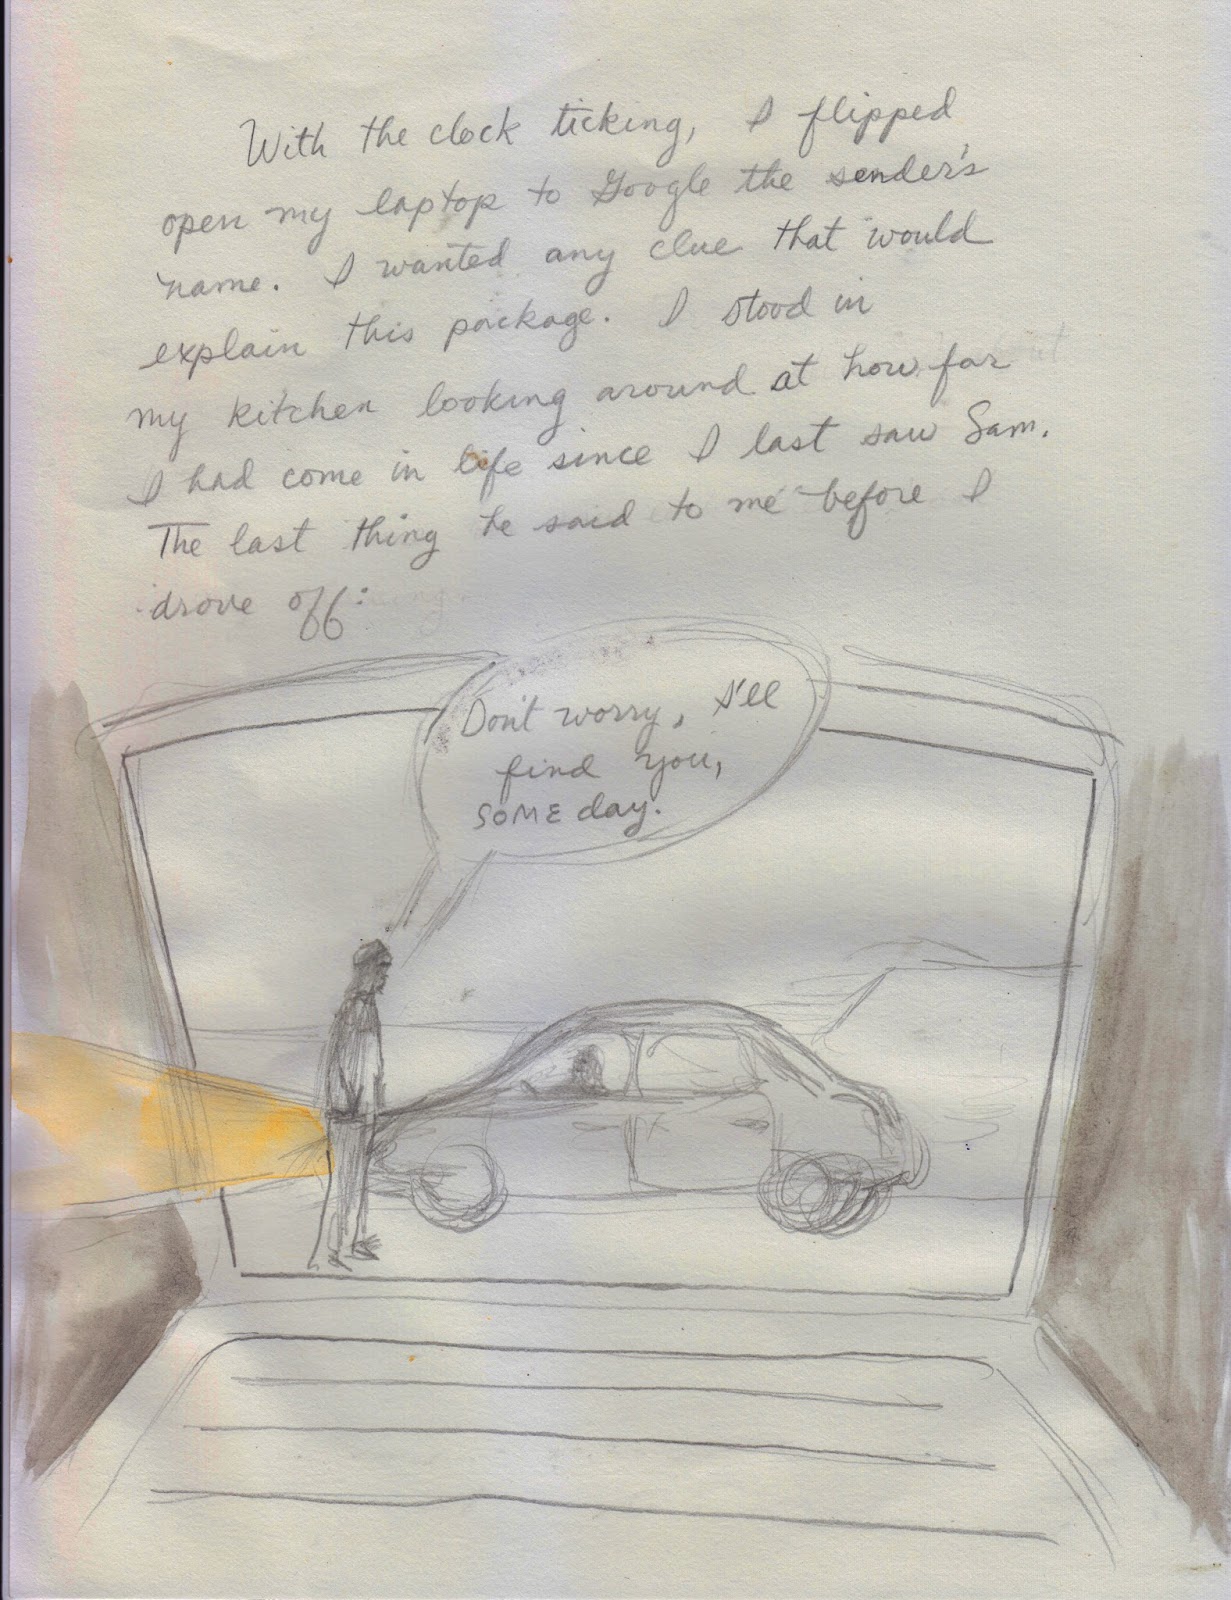 With the clock ticking, I flipped
open my laptop to Google the sender's
name. I wanted any clue that would
explain this package. I stood in
my kitchen looking around at how far
I had come in life since I last saw Sam.
The last thing he said to me before I
drove off:
Don't worry, I'll
find you,
SOME day.